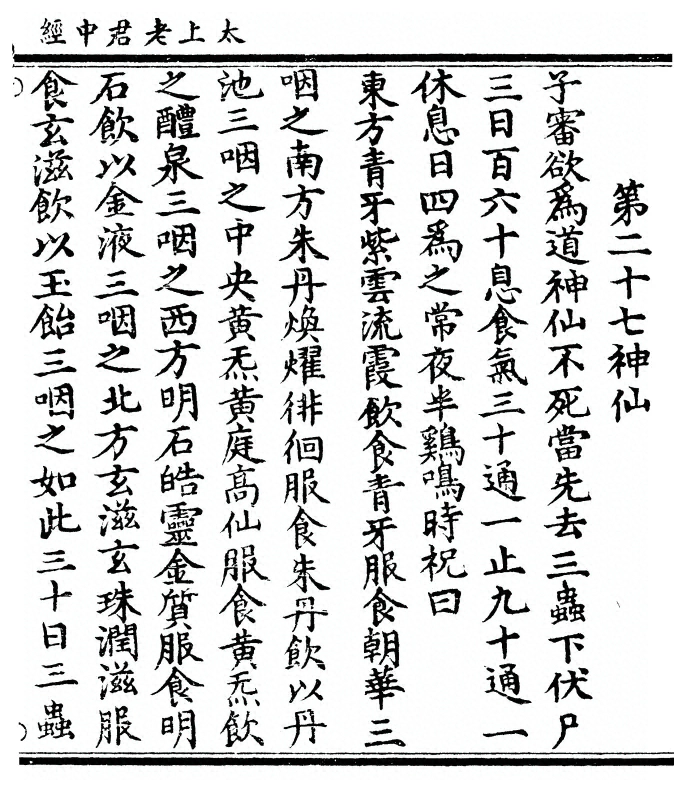 太上老君中經
第二十七神仙
子審欲爲道神仙不死當先去三蟲下伏尸
三日百六十息食氣三十通一止九十通一
休息日四爲之常夜半鷄鳴時祝曰
東方青牙紫雲流霞飲食青牙服食朝華三
咽之南方朱丹煥耀徘徊服食朱丹飲以丹
池三咽之中央黃炁黃庭高仙服食黃炁飲
之醴泉三咽之西方明石皓靈金質服食明
石飲以金液三咽之北方玄滋玄珠潤滋服
食玄滋飲以玉飴三咽之如此三十日三蟲